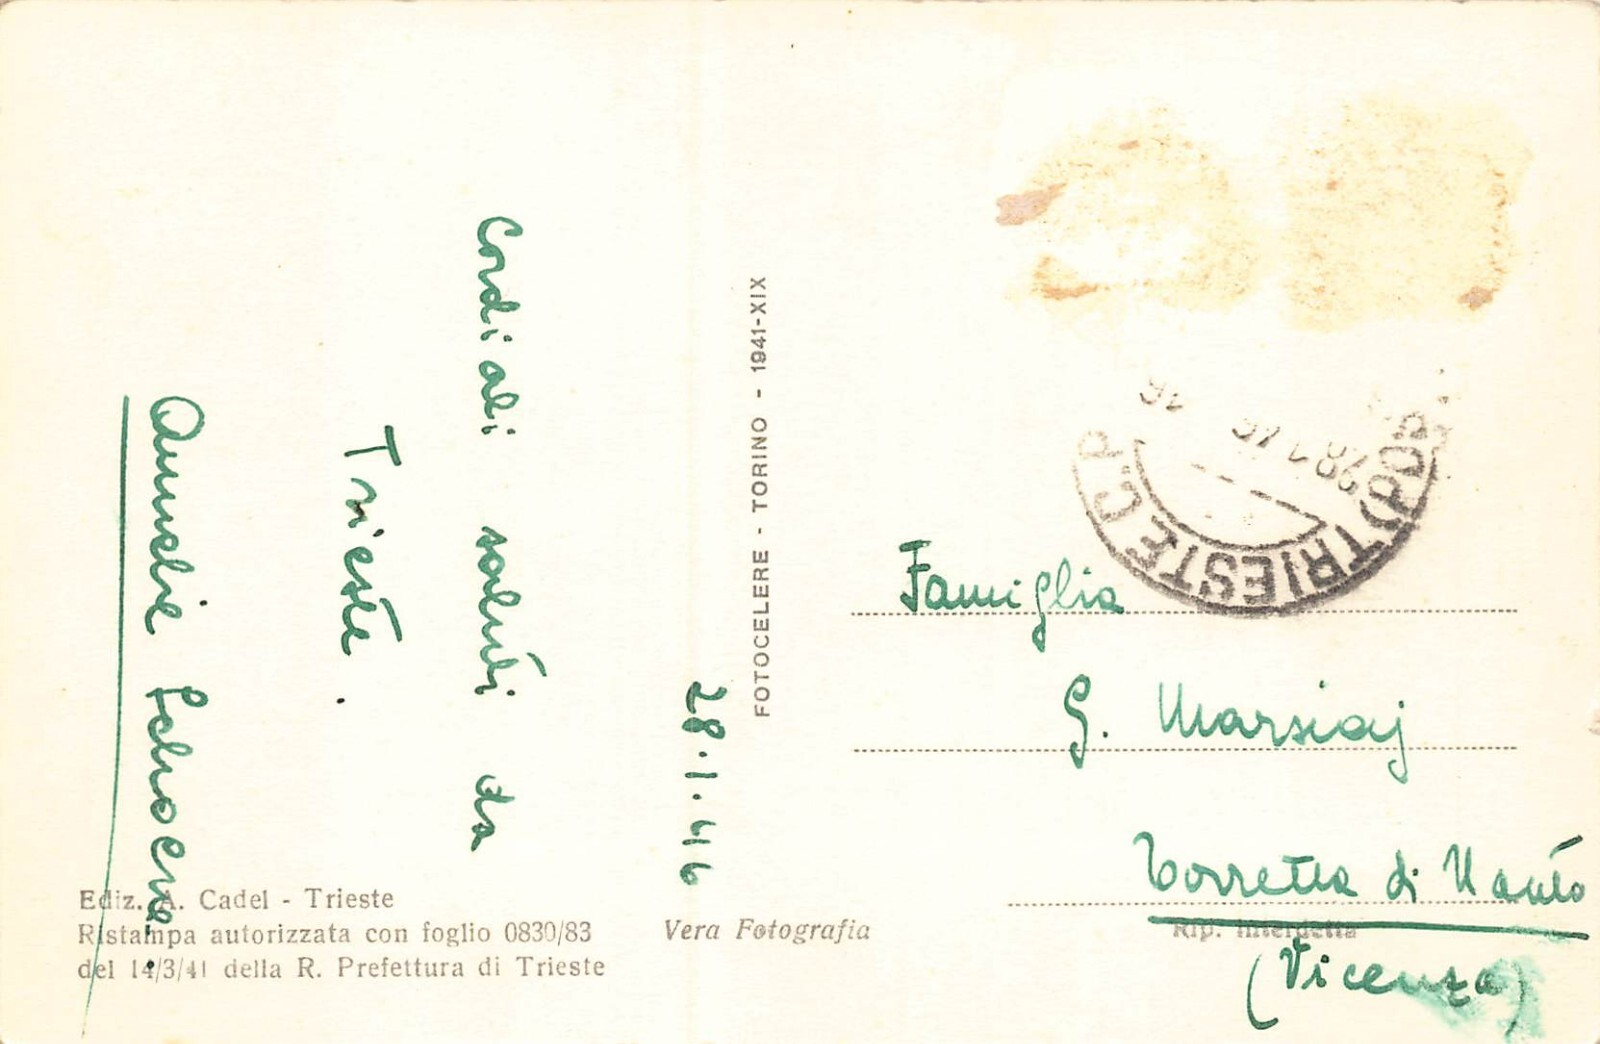 28.1.46
Cordiali saluti da
Trieste.
Ediz. A. Cadel - Trieste
Ristampa autorizzata con foglio 0830/83
del 14/3/41 della R. Prefettura di Trieste
Vera Fotografia
FOTOCELERE - TORINO - 1941-XIX
TRIESTE C.P.
28 1 46
Famiglia
G. Marsiaj
Torretta di Nanto
Rip. interdetta
(Vicenza)